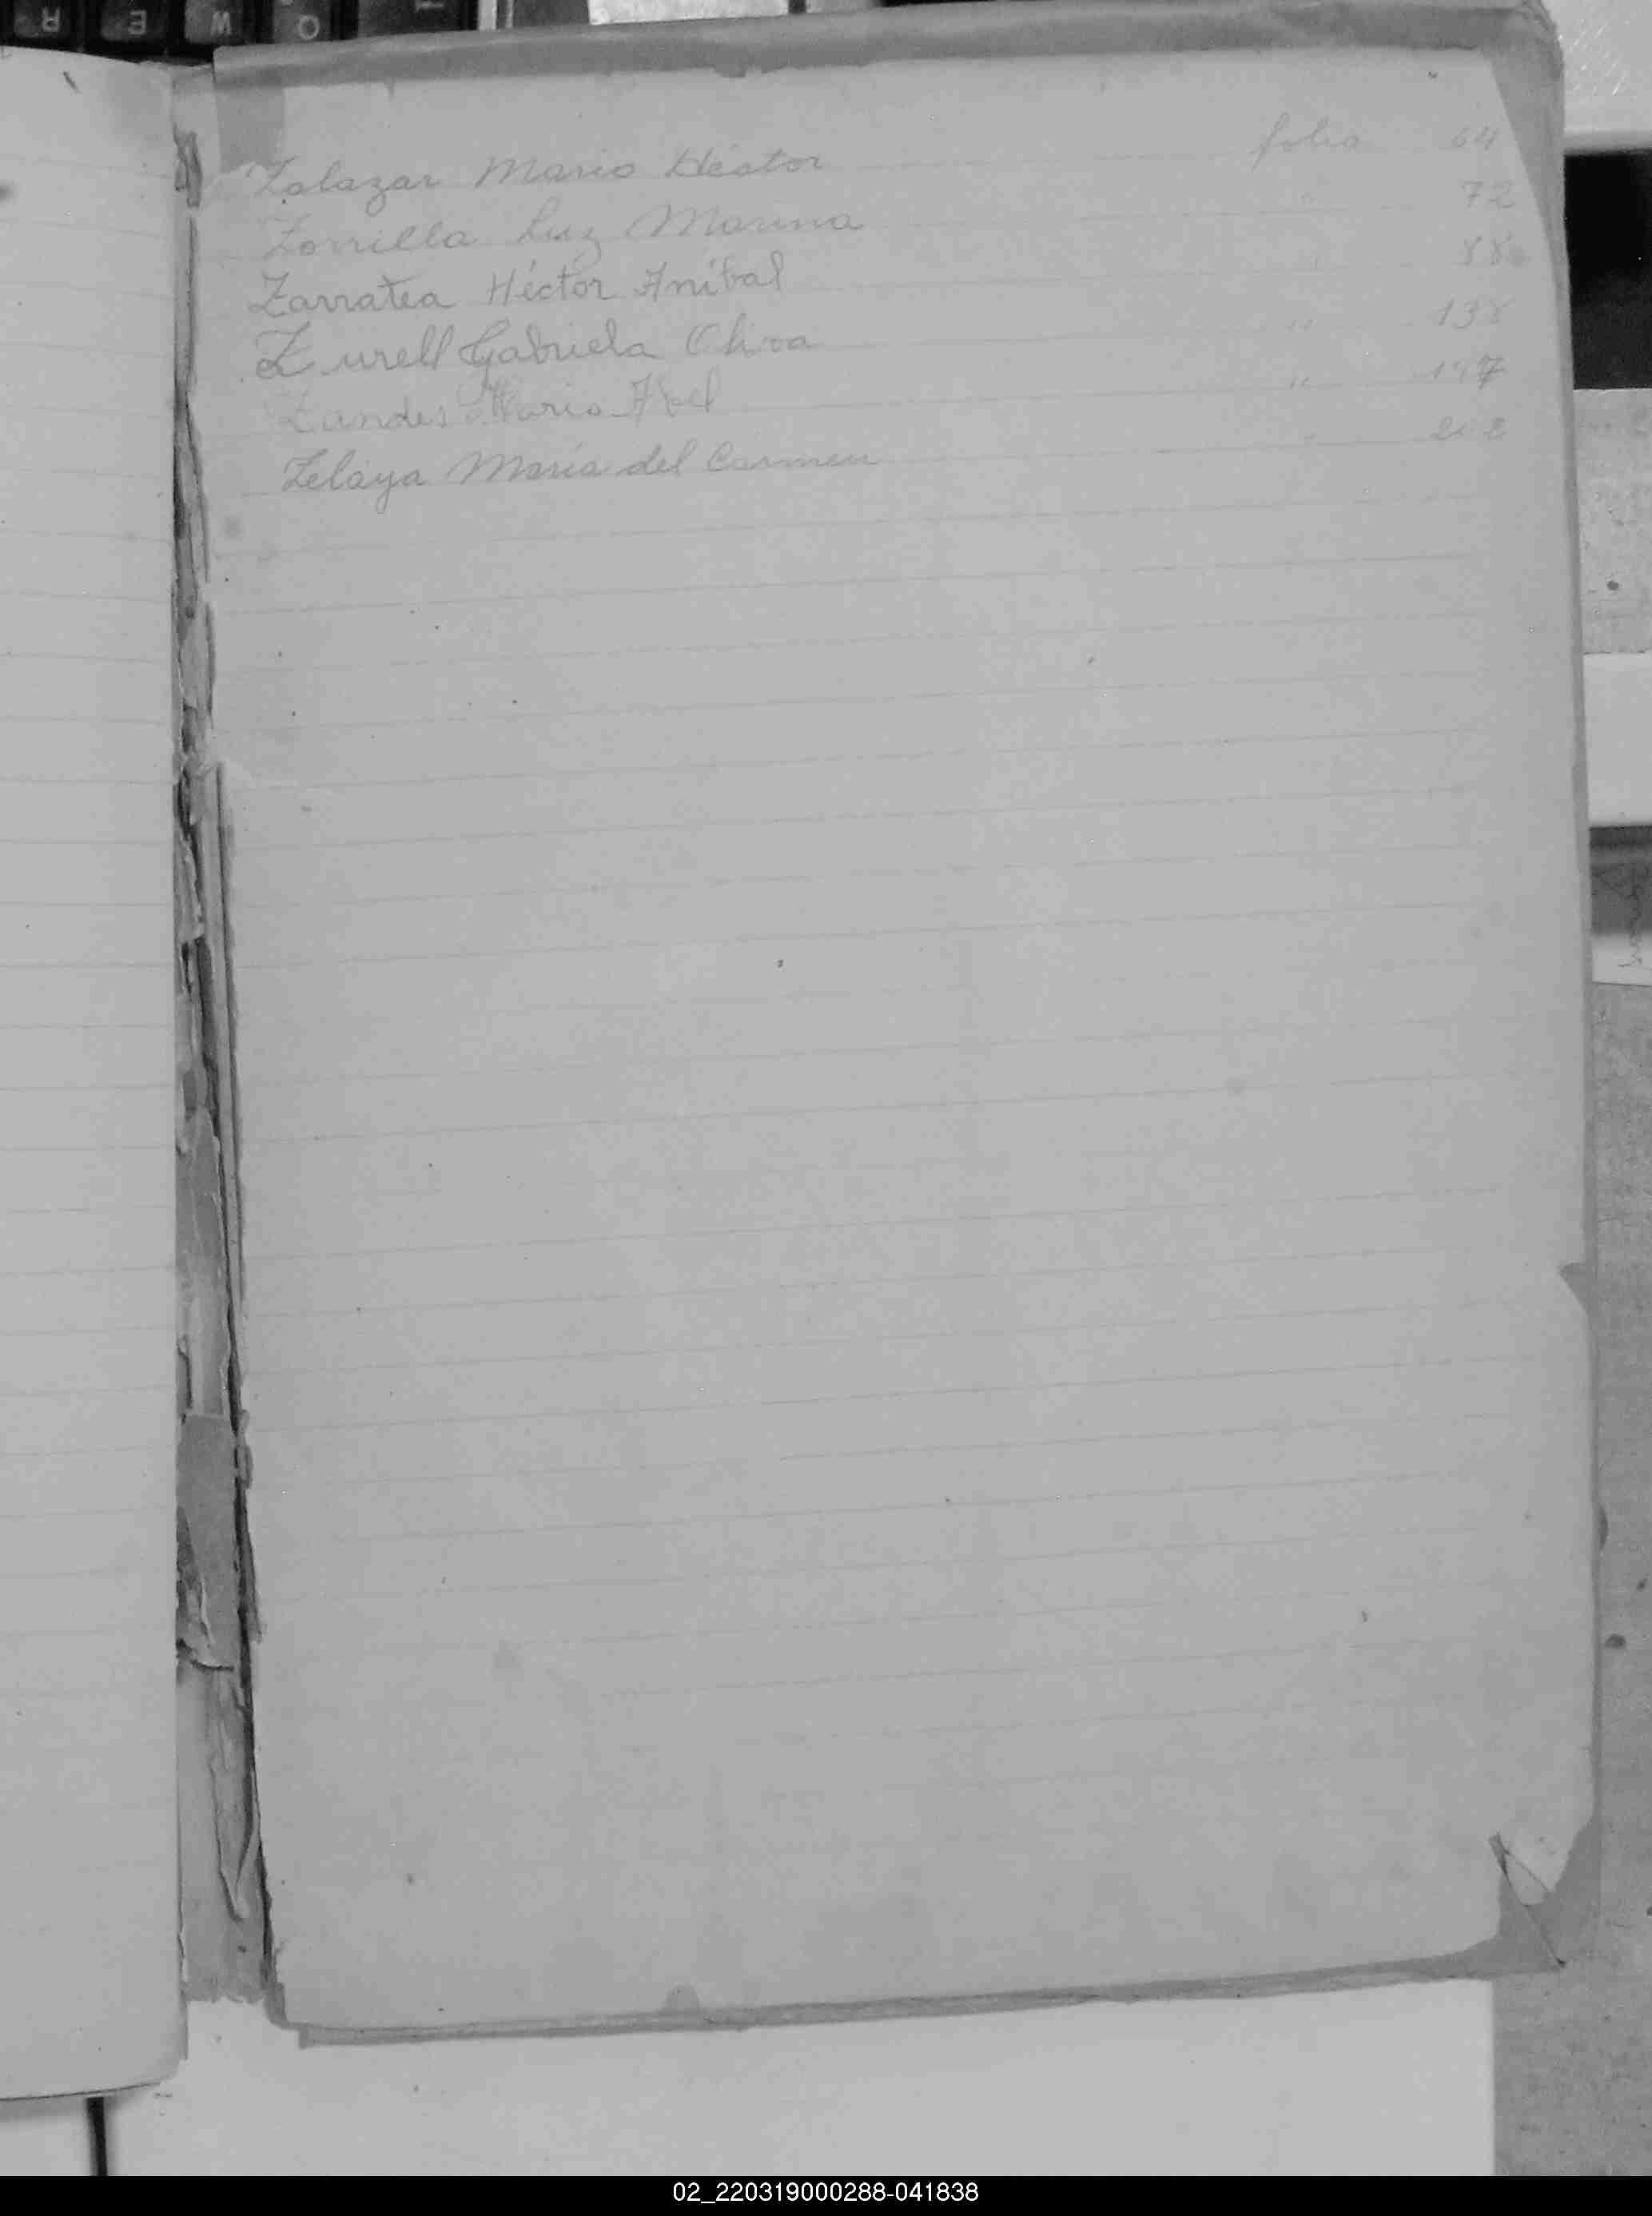 Zalazar Mario Héctor folio 64
Zorrilla Luz Marina " 72
Zarratea Héctor Aníbal " 88
Zurell Gabriela " 138
Mario Abel " 197
Zelaya María del Carmen "
02_220319000288-041838